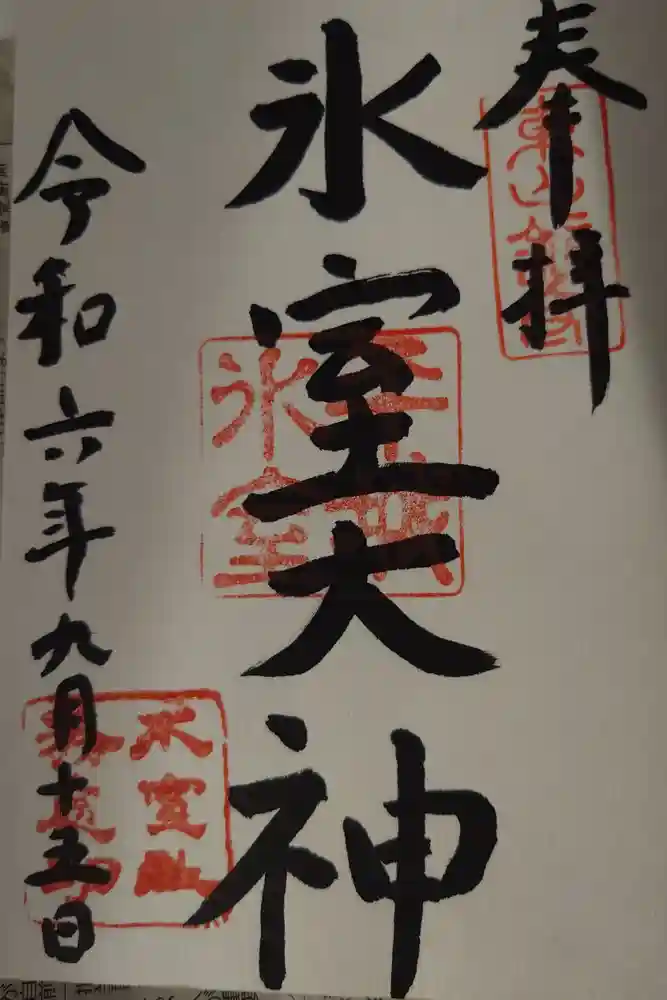 奉拝
氷室大神
令和六年九月十五日
氷室
氷室社